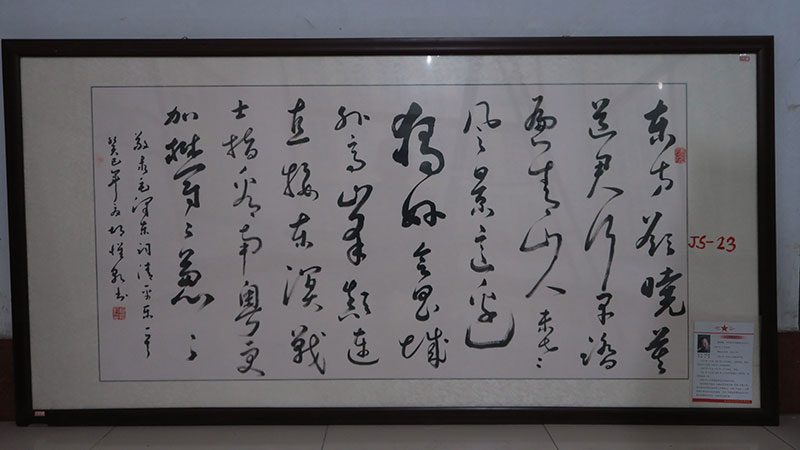 东方欲曉莫
道君行早踏
遍青山人未老
风景这边
独好会昌城
外高峯颠连
直接东溟战
士指看南粤更
加郁々葱々
敬录毛泽东词清平乐一首
癸巳年
书
JS-23